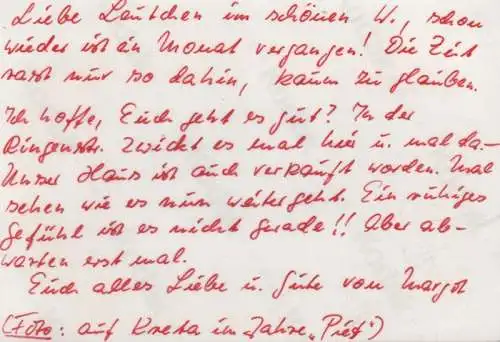 Liebe Leutchen im schönen W., schon
wieder ist ein Monat vergangen! Die Zeit
rast nur so dahin, kaum zu glauben.
Ich hoffe, Euch geht es gut? In der
Ringenstr. zwickt es mal hier u. mal da–
Unser Haus ist auch verkauft worden. Mal
sehen wie es nun weitergeht. Ein ruhiges
Gefühl ist es nicht gerade!! Aber ab-
warten erst mal.
Euch alles Liebe u. Gute von Margot
(Foto: auf Kreta im Jahre „Pief“)